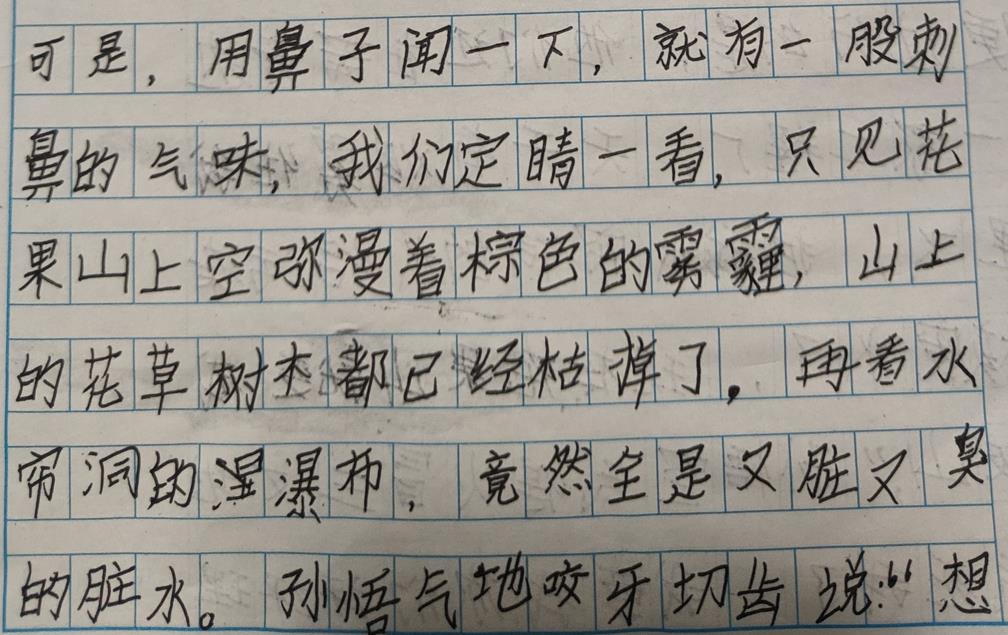 可是，用鼻子闻一下，就有一股刺
鼻的气味，我们定睛一看，只见花
果山上空弥漫着棕色的雾霾，山上
的花草树木都已经枯掉了。再看水
帘洞的湿瀑布，竟然全是又脏又臭
的脏水。孙悟气地咬牙切齿说：“想